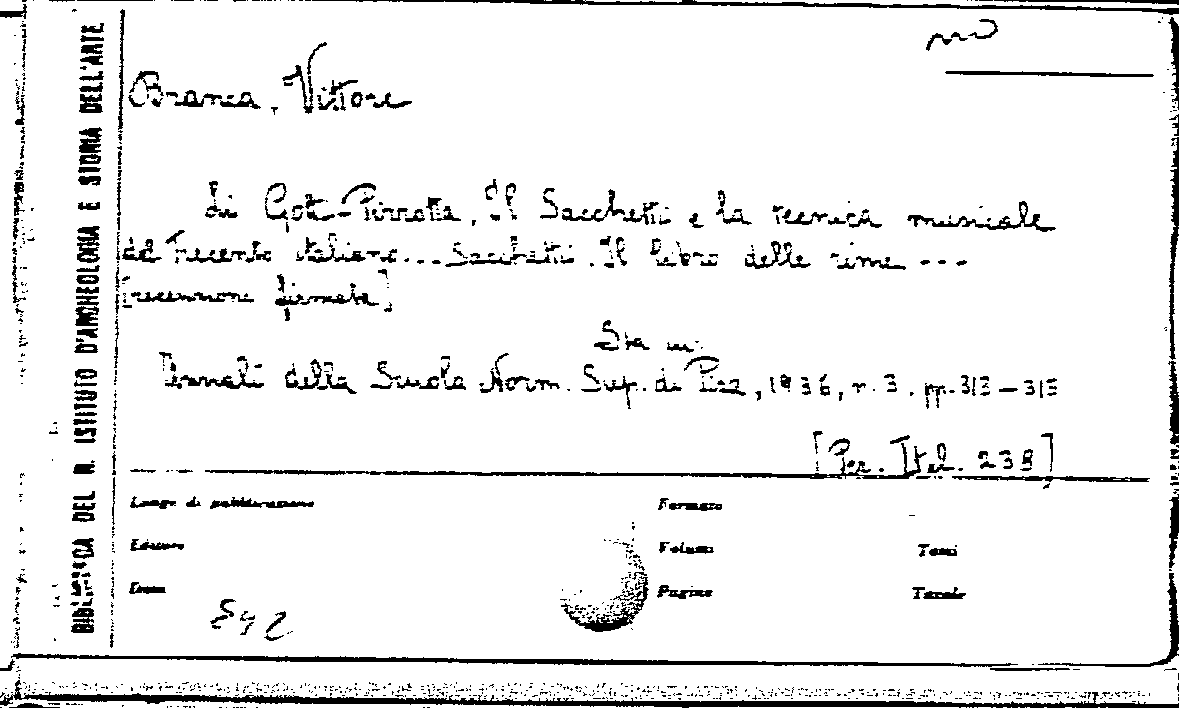 BIBLIOTECA DEL R. ISTITUTO D'ARCHEOLOGIA E STORIA DELL'ARTE
Branca, Vittore
di Goti-Pirrotta, Il Sacchetti e la tecnica musicale
del Trecento italiano... Sacchetti. Il libro delle rime ---
[recensione firmata]
Sta in:
Annali della Scuola Norm. Sup. di Pisa, 1936, n. 3. pp. 313-315
[Per. Ital. 238]
Luogo di pubblicazione
Formato
Editore
Volumi
Tomi
Data
Pagine
Tavole
892